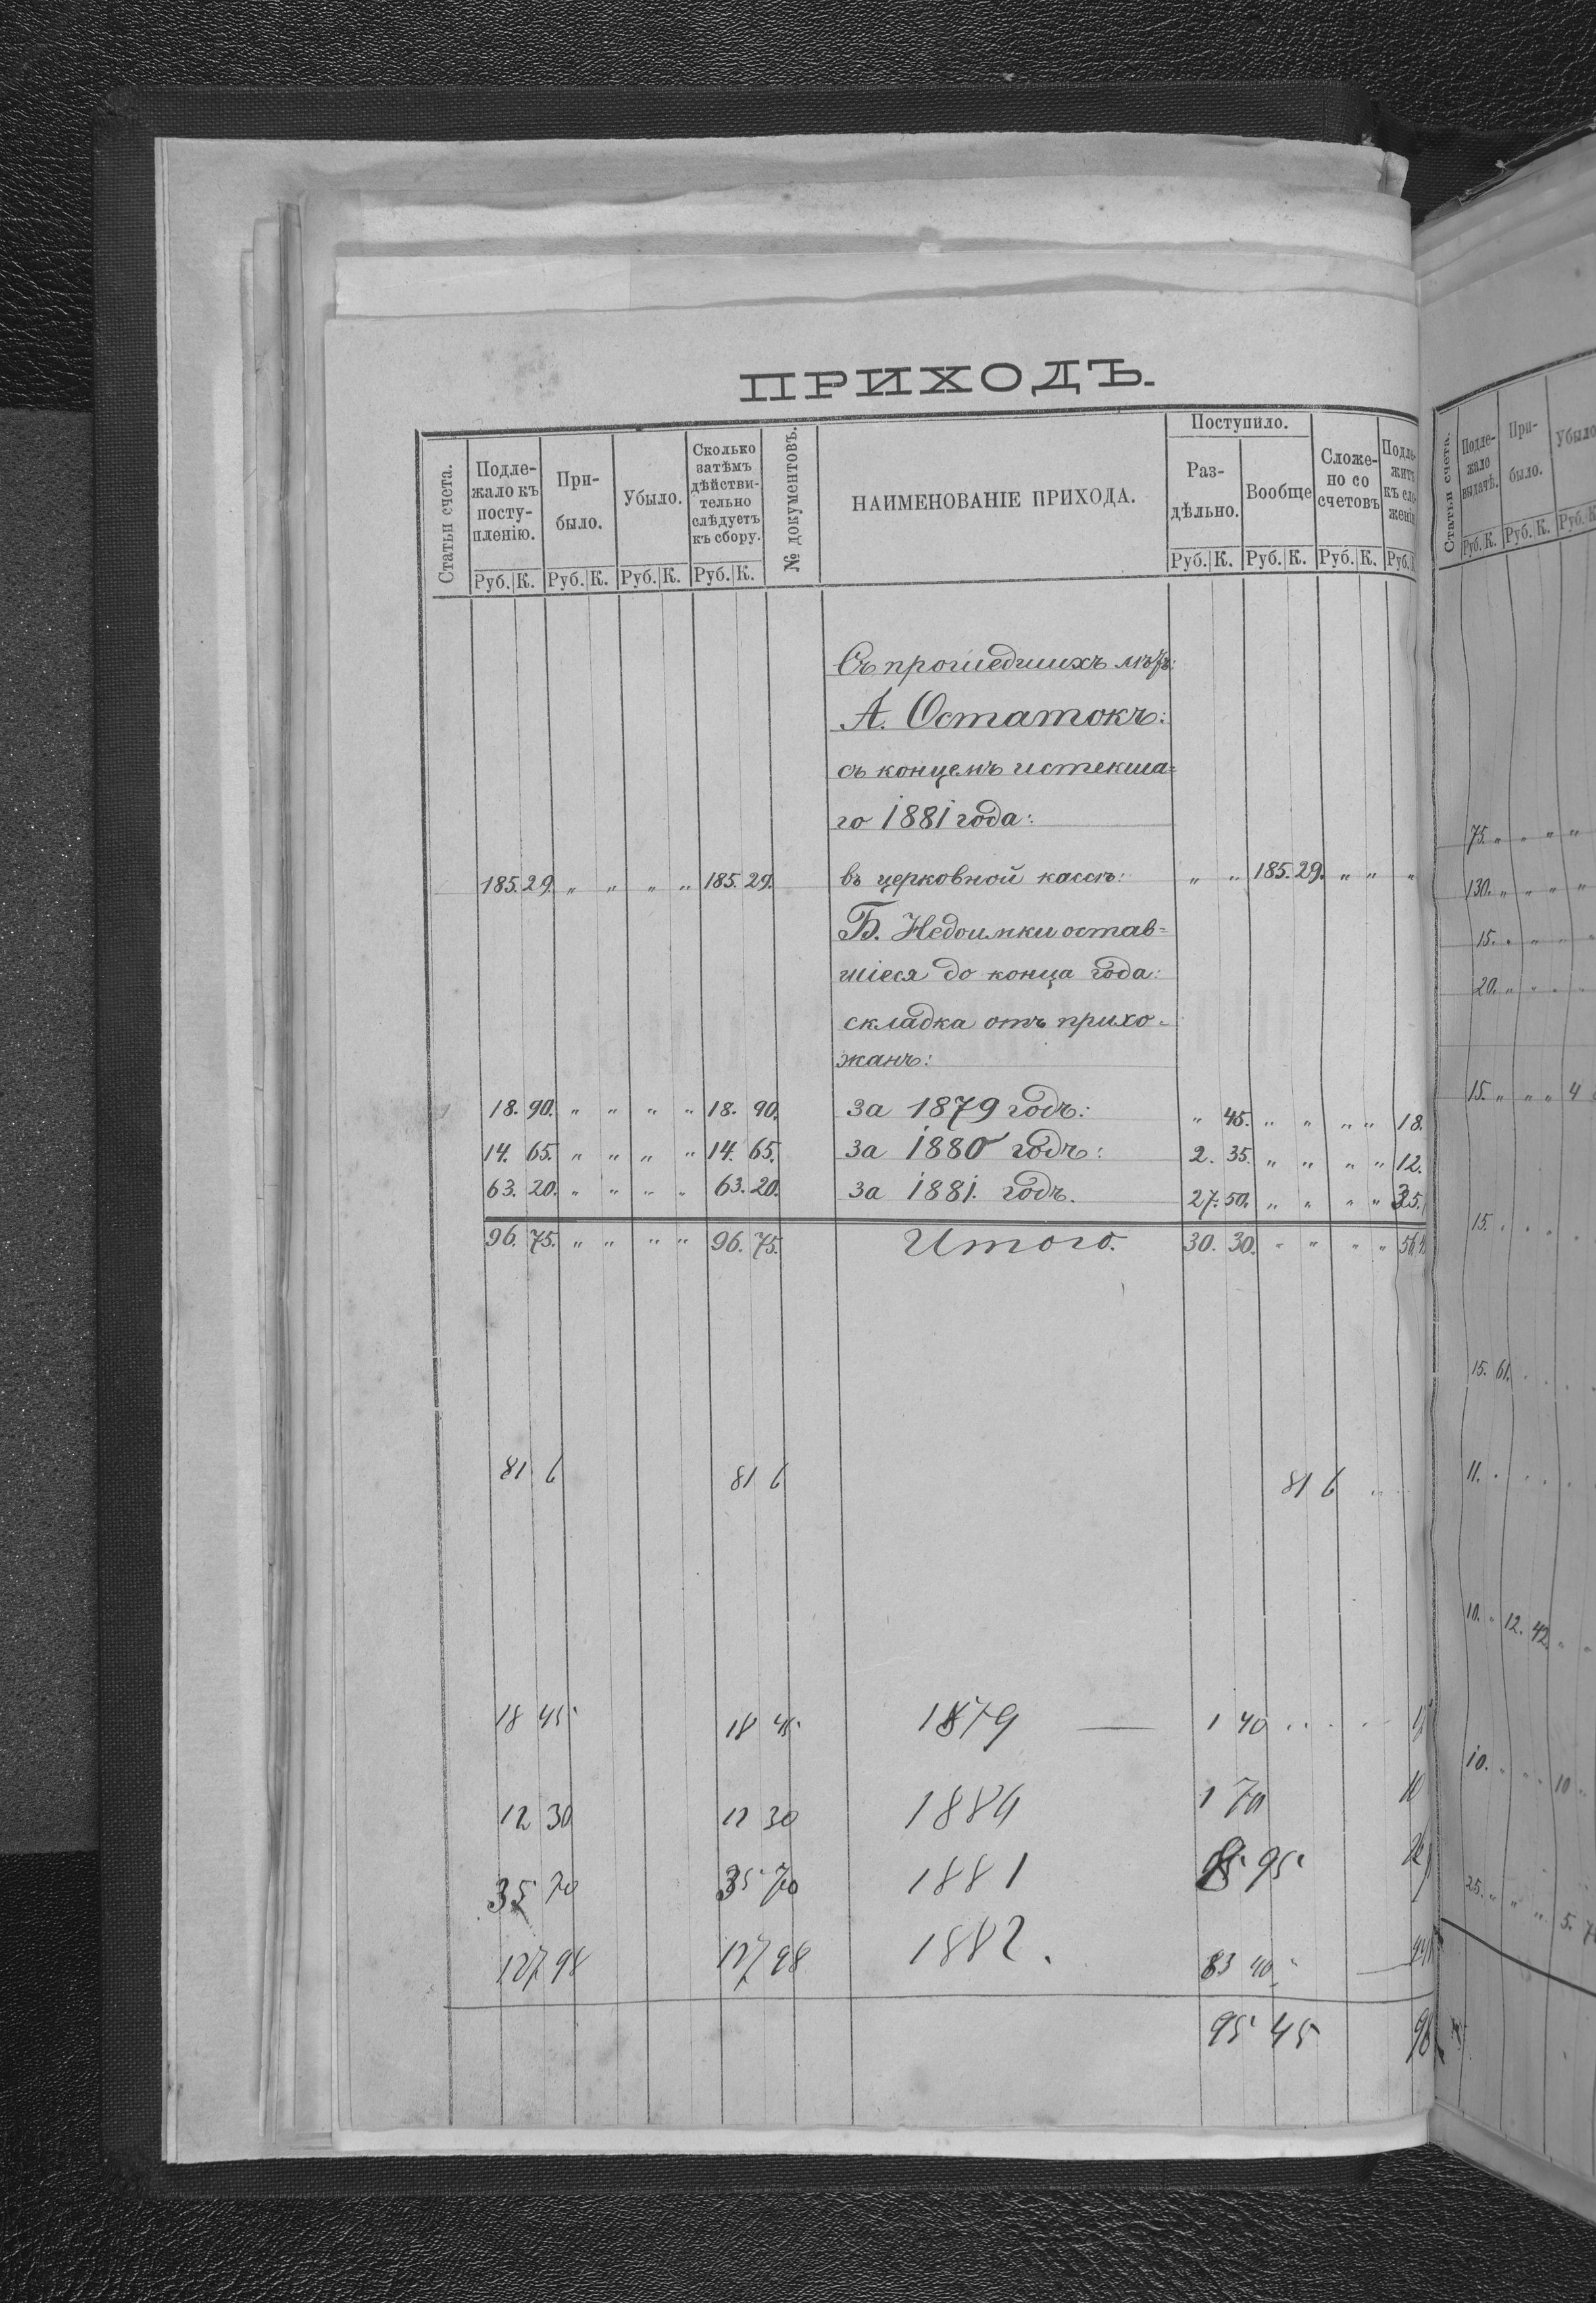 ПРИХОДЪ.
Статьи счета. Подле-жало къ посту-пленію. При-было. Убыло. Сколько затѣмъ дѣйстви-тельно слѣдуетъ къ сбору. № документовъ. НАИМЕНОВАНІЕ ПРИХОДА. Поступило. Раз-дѣльно. Вообще Сложе-но со счетовъ
Руб. К. Руб. К. Руб. К. Руб. К. Руб. К. Руб. К. Руб. К. Руб.
Съ прошедшихъ
А. Остатокъ:
съ концемъ истекша=
го 1881 года:
185. 29. " " " " 185. 29. въ церковной кассѣ: " " 185. 29. " " "
Б. Недоимки остав=
шіеся до конца года:
складка отъ прихо-
жанъ:
18. 90. " " " " 18. 90. за 1879 годъ: " 45. " " " " 18.
14. 65. " " " " 14. 65. за 1880 годъ: 2. 35. " " " " 12.
63. 20. " " " " 63. 20. за 1881. годъ. 27. 50. " " " " 35.
96. 75. " " " " 96. 75. Итого. 30. 30. " " " " 56.
81 6 81 6 81 6
18 45 18 45 1879 — 1 40
12 30 12 30 1 70 10
35 70 35 70 1881 95
127 98 127 98 1882. 83 40
95 45 96
Статьи счета. Подле-жало выдачѣ. При-было. Убыло
Руб. К. Руб. К. Руб. К
75. " " " "
130. " " " "
15. " " "
20. " " "
15. " " " 4
15. " "
15. 61.
11.
10. " 12. 42. " "
10. " " " 10 "
25. " " " 5.